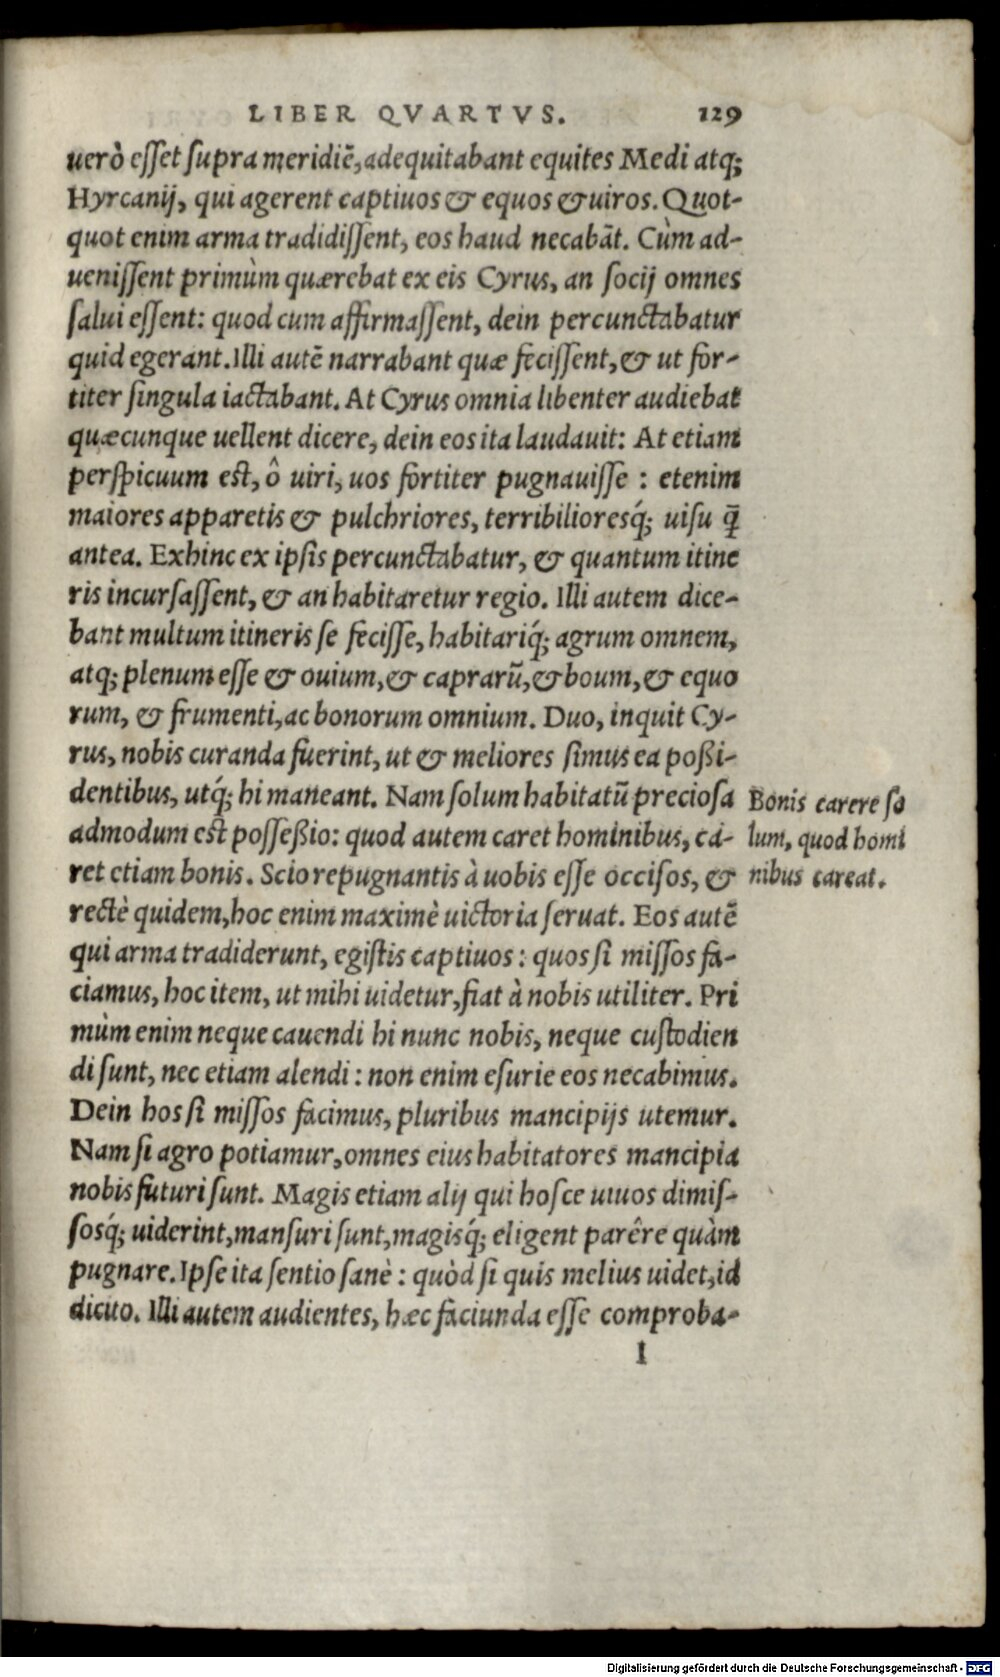 LIBER QVARTVS. 129
uerò esset supra meridiē, adequitabant equites Medi atq;
Hyrcanij, qui agerent captiuos & equos & uiros. Quot-
quot enim arma tradidissent, eos haud necabāt. Cùm ad-
uenissent primùm quærebat ex eis Cyrus, an socij omnes
salui essent: quod cum affirmassent, dein percunctabatur
quid egerant. Illi autē narrabant quæ fecissent, & ut for-
titer singula iactabant. At Cyrus omnia libenter audiebat
quæcunque uellent dicere, dein eos ita laudauit: At etiam
perspicuum est, ô uiri, uos fortiter pugnauisse : etenim
maiores apparetis & pulchriores, terribilioresq́; uisu q̄
antea. Exhinc ex ipsis percunctabatur, & quantum itine
ris incursassent, & an habitaretur regio. Illi autem dice-
bant multum itineris se fecisse, habitariq́; agrum omnem,
atq; plenum esse & ouium, & caprarū, & boum, & equo
rum, & frumenti, ac bonorum omnium. Duo, inquit Cy-
rus, nobis curanda fuerint, ut & meliores simus ea poßi-
dentibus, utq́; hi maneant. Nam solum habitatū preciosa
admodum est posseßio: quod autem caret hominibus, ca-
ret etiam bonis. Scio repugnantis à uobis esse occisos, &
rectè quidem, hoc enim maximè uictoria seruat. Eos autē
qui arma tradiderunt, egistis captiuos : quos si missos fa-
ciamus, hoc item, ut mihi uidetur, fiat à nobis utiliter. Pri
mùm enim neque cauendi hi nunc nobis, neque custodien
di sunt, nec etiam alendi : non enim esurie eos necabimus.
Dein hos si missos facimus, pluribus mancipijs utemur.
Nam si agro potiamur, omnes eius habitatores mancipia
nobis futuri sunt. Magis etiam alij qui hosce uiuos dimis-
sosq́; uiderint, mansuri sunt, magisq́; eligent parêre quàm
pugnare. Ipse ita sentio sanè : quòd si quis melius uidet, id
dicito. Illi autem audientes, hæc faciunda esse comproba-
I
Bonis carere so
lum, quod homi
nibus careat.
Digitalisierung gefördert durch die Deutsche Forschungsgemeinschaft - DFG